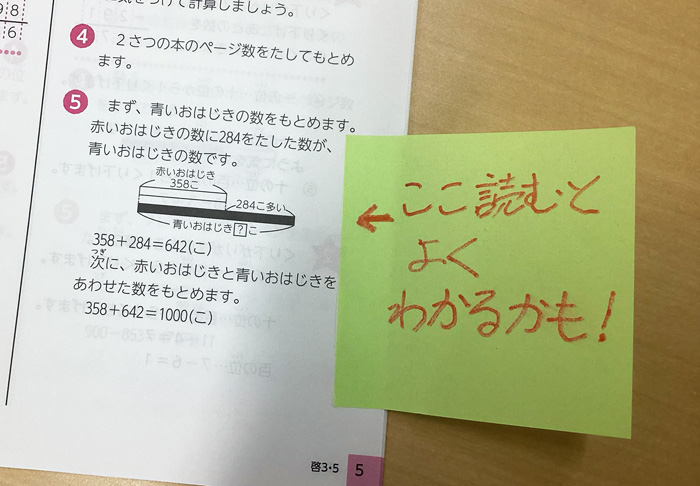 気をつけて計算しましょう。
98
6
4 2さつの本のページ数をたしてもとめ
ます。
5 まず、青いおはじきの数をもとめます。
赤いおはじきの数に284をたした数が、
青いおはじきの数です。
赤いおはじき
358こ
284こ多い
青いおはじき?こ
358+284=642(こ)
つぎ
次に、赤いおはじきと青いおはじきを
あわせた数をもとめます。
358+642=1000(こ)
啓3・5 5
←ここ読むと
よく
わかるかも!